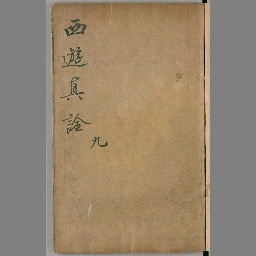 西遊真詮
九